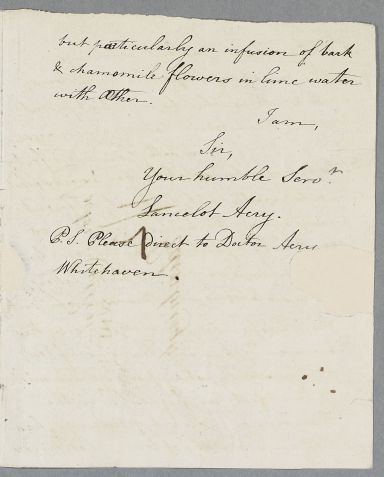 but particularly an infusion of bark
& chamomile flowers in lime water
with Æther.
I am,
Sir,
Your humble Servt.
Lancelot Aery.
P.S. Please direct to Doctor Aery
Whitehaven.